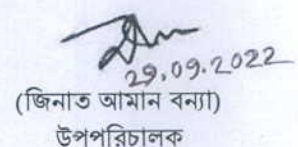 29.09.2022
(জিনাত আমান বন্যা)
উপপরিচালক